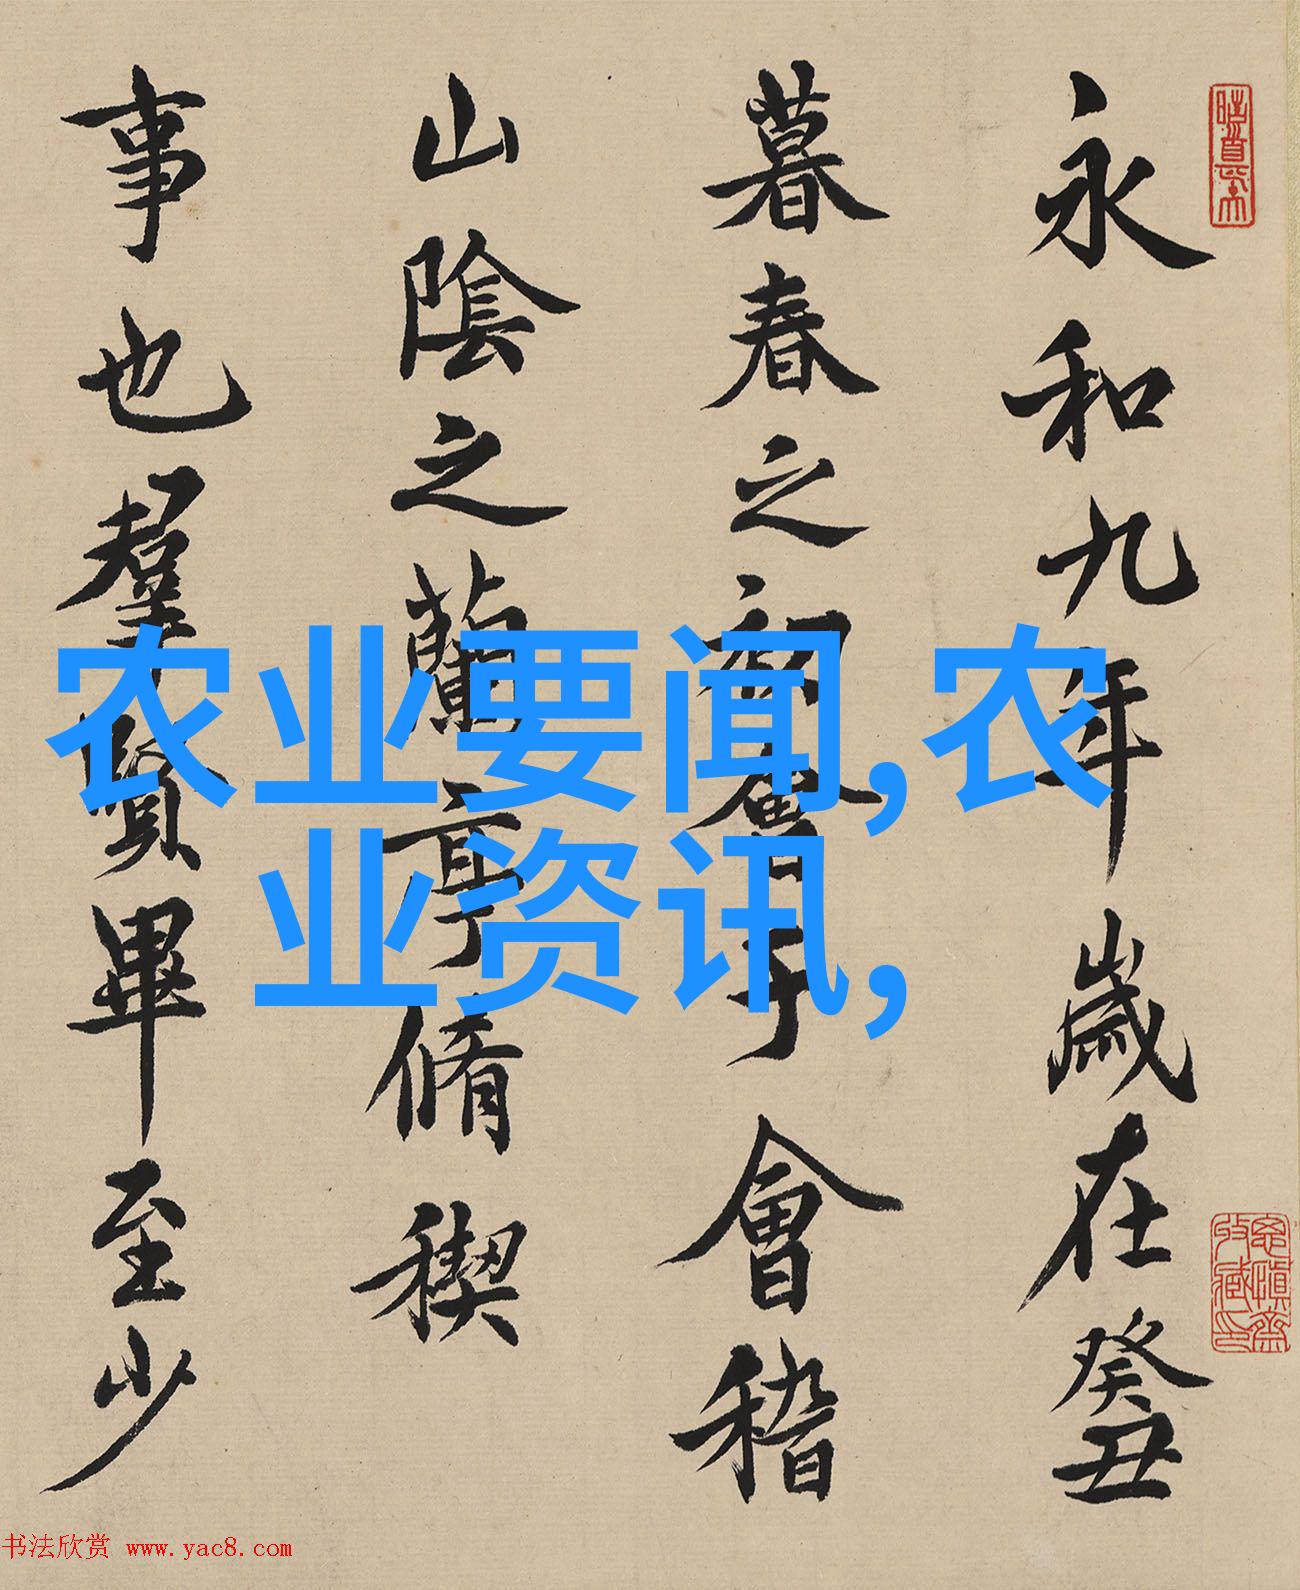 永和九年歲在癸丑
暮春之初會于會稽
山陰之蘭亭脩稧
事也羣賢畢至少
农业要闻,农
业资讯,
书法欣赏 www.yac8.com